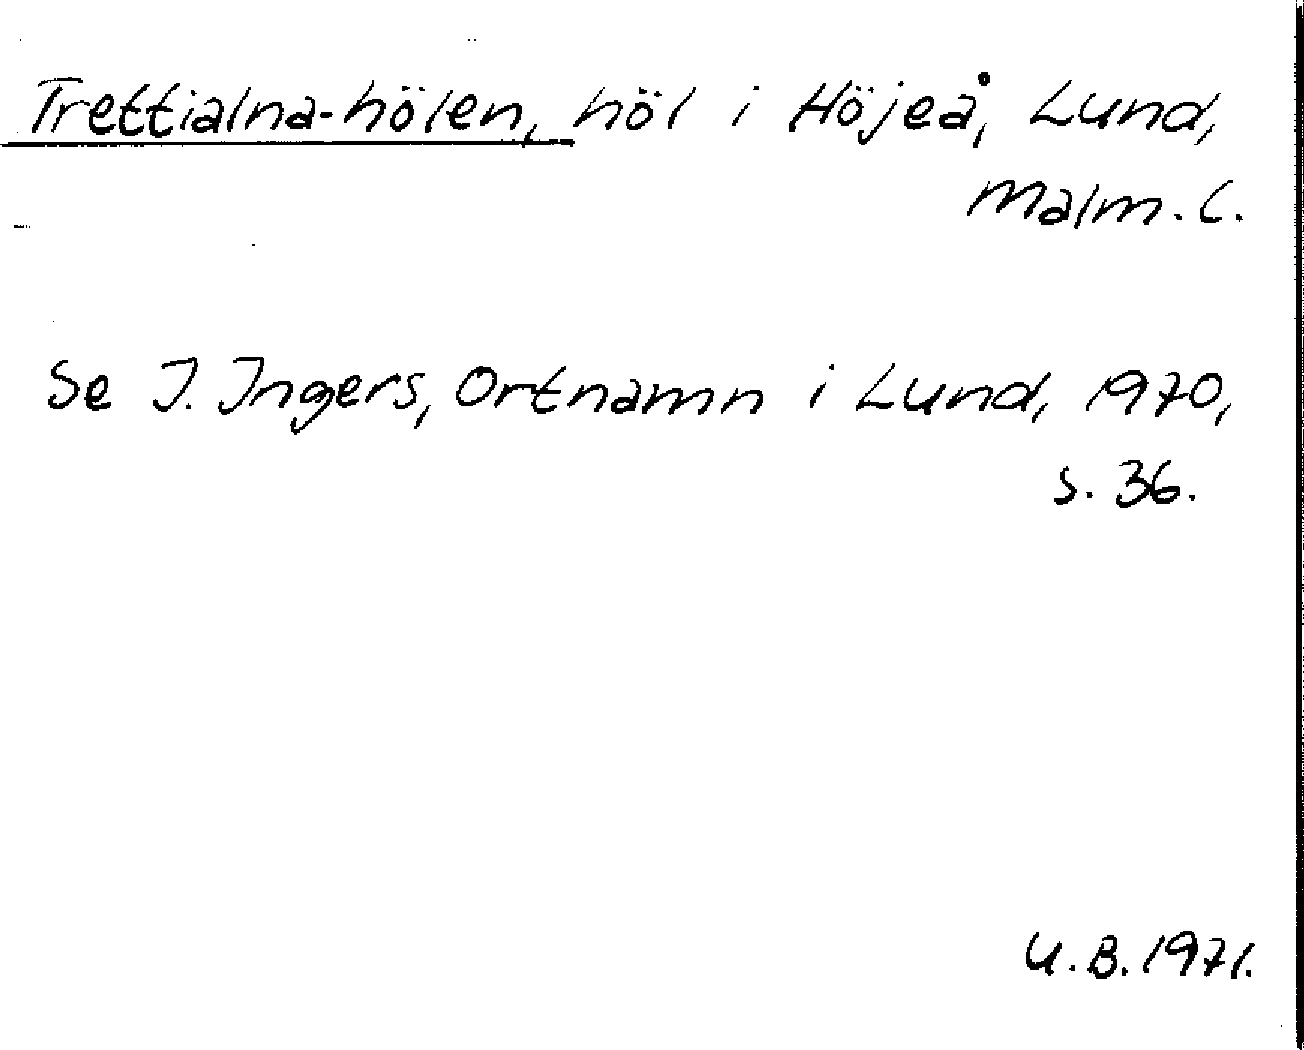 Trettialna-hölen, höl i Höjeå, Lund,
Malm. L.
Se J. Ingers, Ortnamn i Lund, 1970,
s. 36.
U.B. 1971.